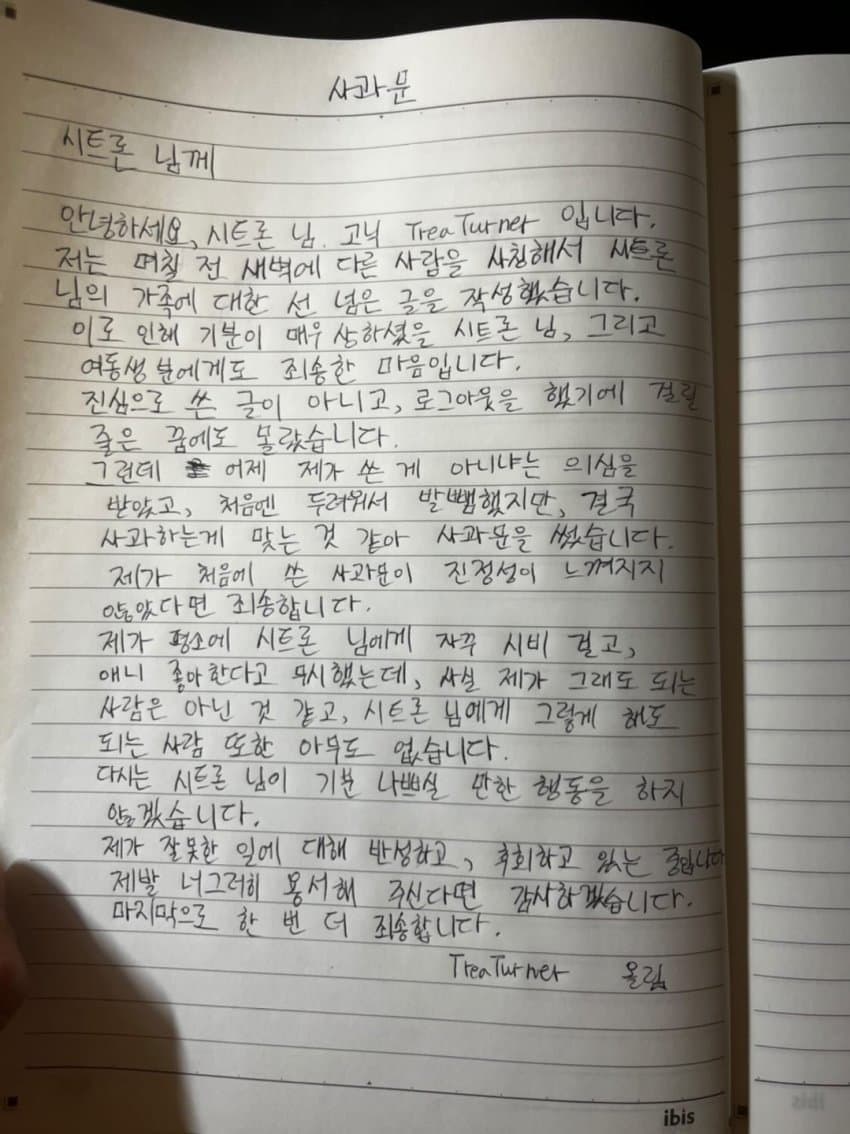 사과문
시트론 님께
안녕하세요, 시트론 님. 고닉 Trea Turner 입니다.
저는 며칠 전 새벽에 다른 사람을 사칭해서 시트론
님의 가족에 대한 선 넘은 글을 작성했습니다.
이로 인해 기분이 매우 상하셨을 시트론 님, 그리고
여동생 분에게도 죄송한 마음입니다.
진심으로 쓴 글이 아니고, 로그아웃을 했기에 걸릴
줄은 꿈에도 몰랐습니다.
그런데 어제 제가 쓴 게 아니냐는 의심을
받았고, 처음엔 두려워서 발뺌했지만, 결국
사과하는게 맞는 것 같아 사과문을 썼습니다.
제가 처음에 쓴 사과문이 진정성이 느껴지지
않았다면 죄송합니다.
제가 평소에 시트론 님에게 자꾸 시비 걸고,
애니 좋아한다고 무시했는데, 사실 제가 그래도 되는
사람은 아닌 것 같고, 시트론 님에게 그렇게 해도
되는 사람 또한 아무도 없습니다.
다시는 시트론 님이 기분 나쁘실 만한 행동을 하지
않겠습니다.
제가 잘못한 일에 대해 반성하고, 후회하고 있는 중입니다
제발 너그러히 용서해 주신다면 감사하겠습니다.
마지막으로 한 번 더 죄송합니다.
Trea Turner 올림
ibis